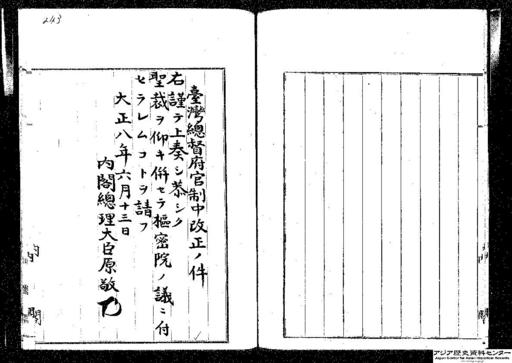 243
臺灣總督府官制中改正ノ件
右謹テ上奏シ恭シク
聖裁ヲ仰キ併セテ樞密院ノ議ニ付
セラレムコトヲ請フ
大正八年六月十三日
内閣總理大臣原敬
内閣
アジア歴史資料センター
Japan Center for Asian Historical Records